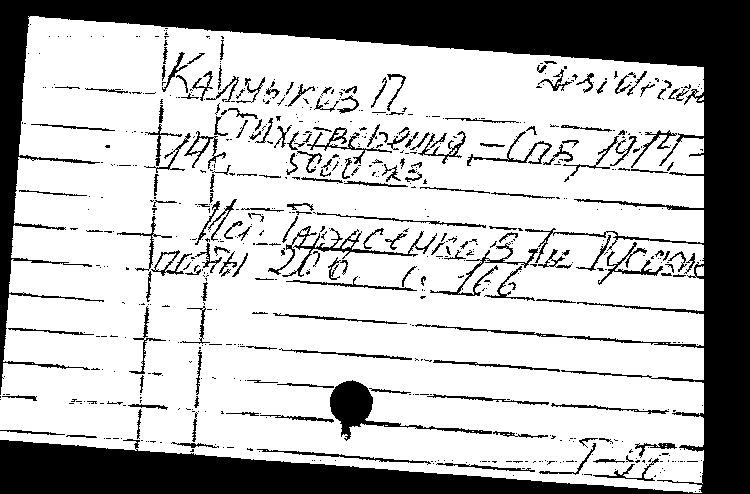 Desideran
Калмыков П.
Стихотворения. – Спб, 1914. –
14 с. 5000 экз.
Ист. Тарасенков Ан. Русские
поэты 20 в. с. 166